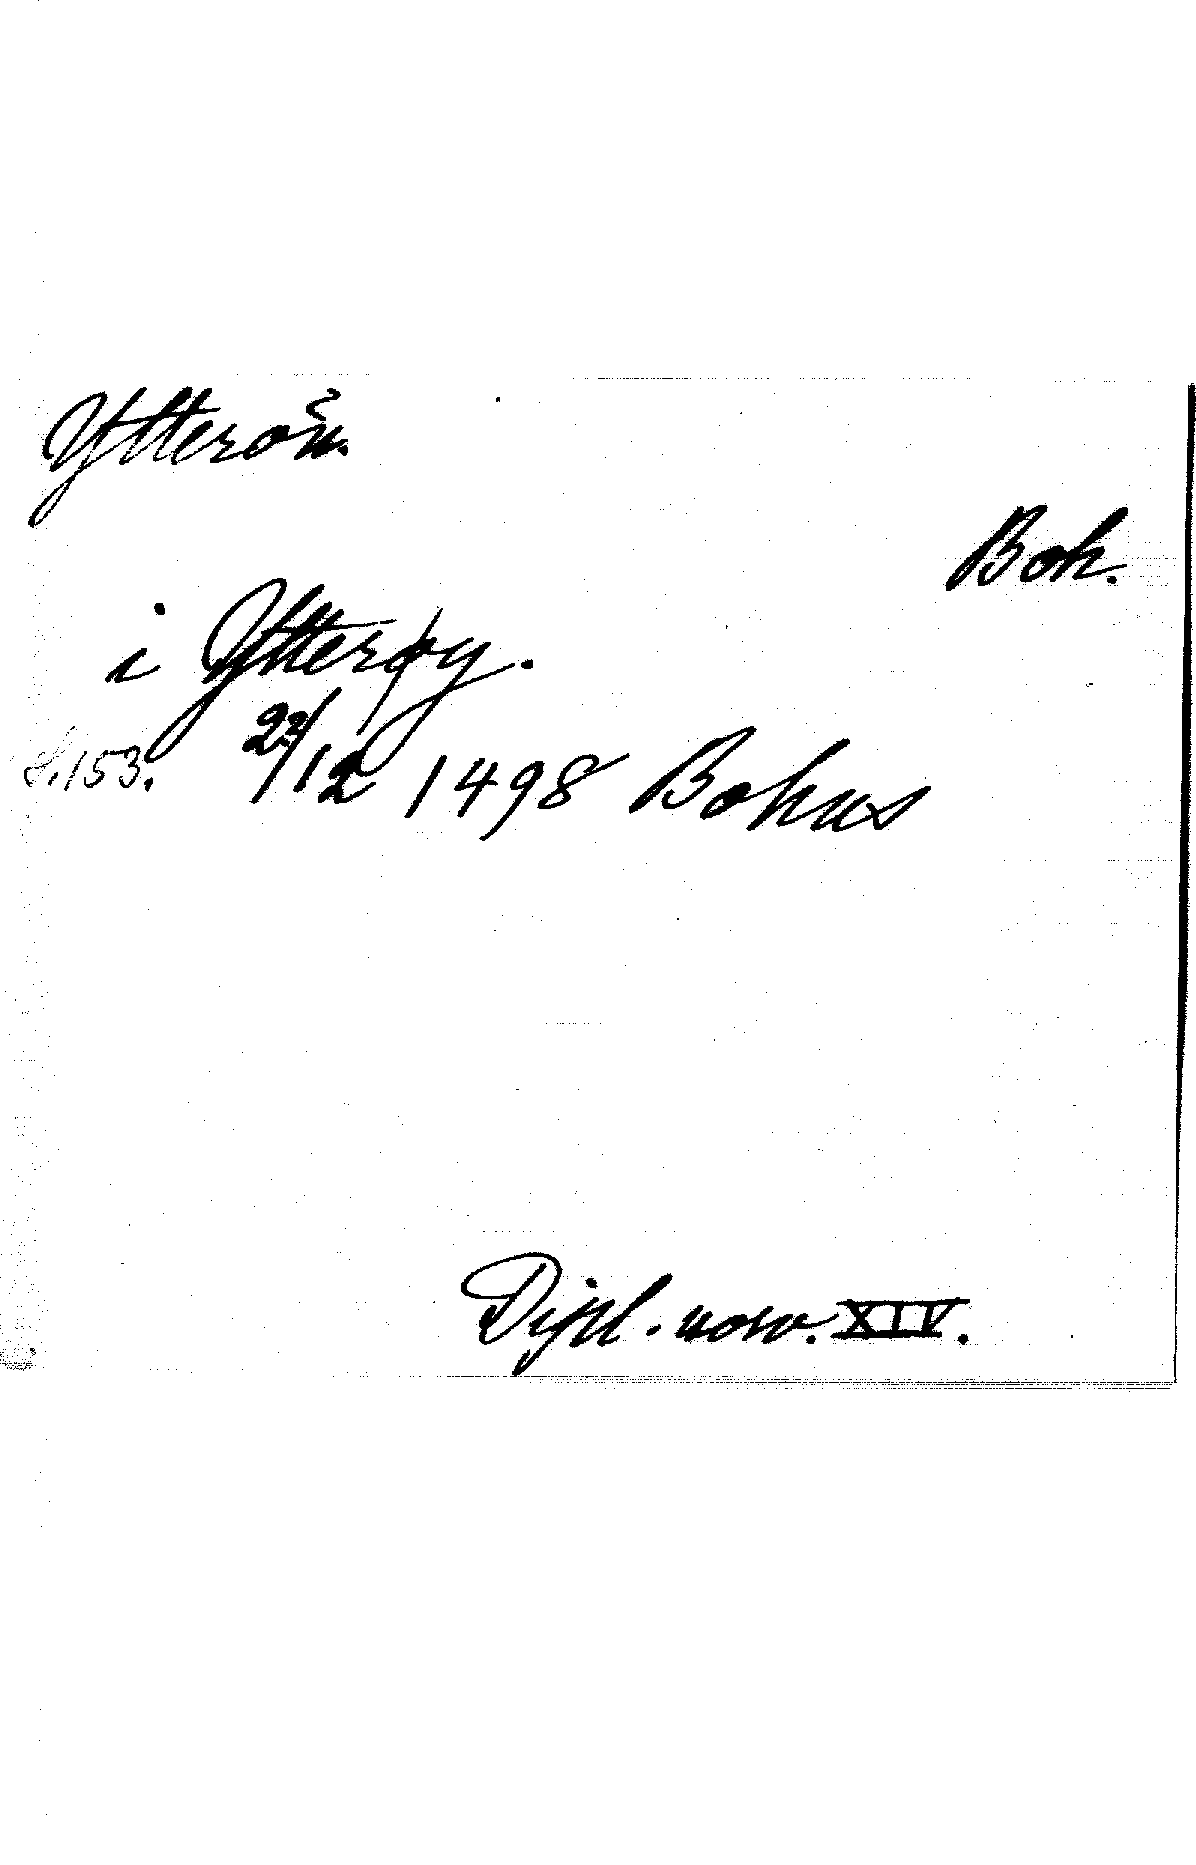 Ytterön.
Boh.
i Ytterøy.
s. 153. 22/12 1498 Bohus
Dipl. norv. XIV.